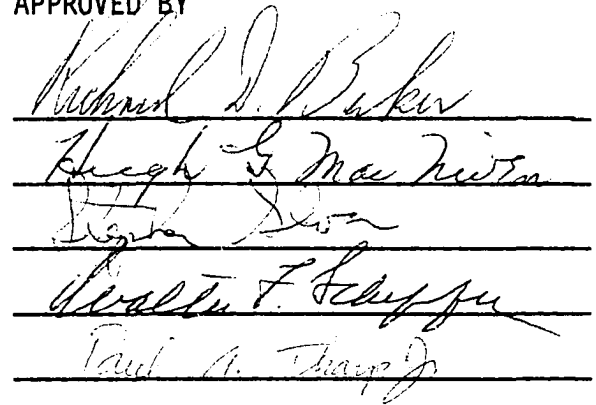 APPROVED BY
Richard D. Baker
Hugh G. Mac Niven
Stephen Sloan
Walter F. Scheffer
Paul A. Tharp Jr